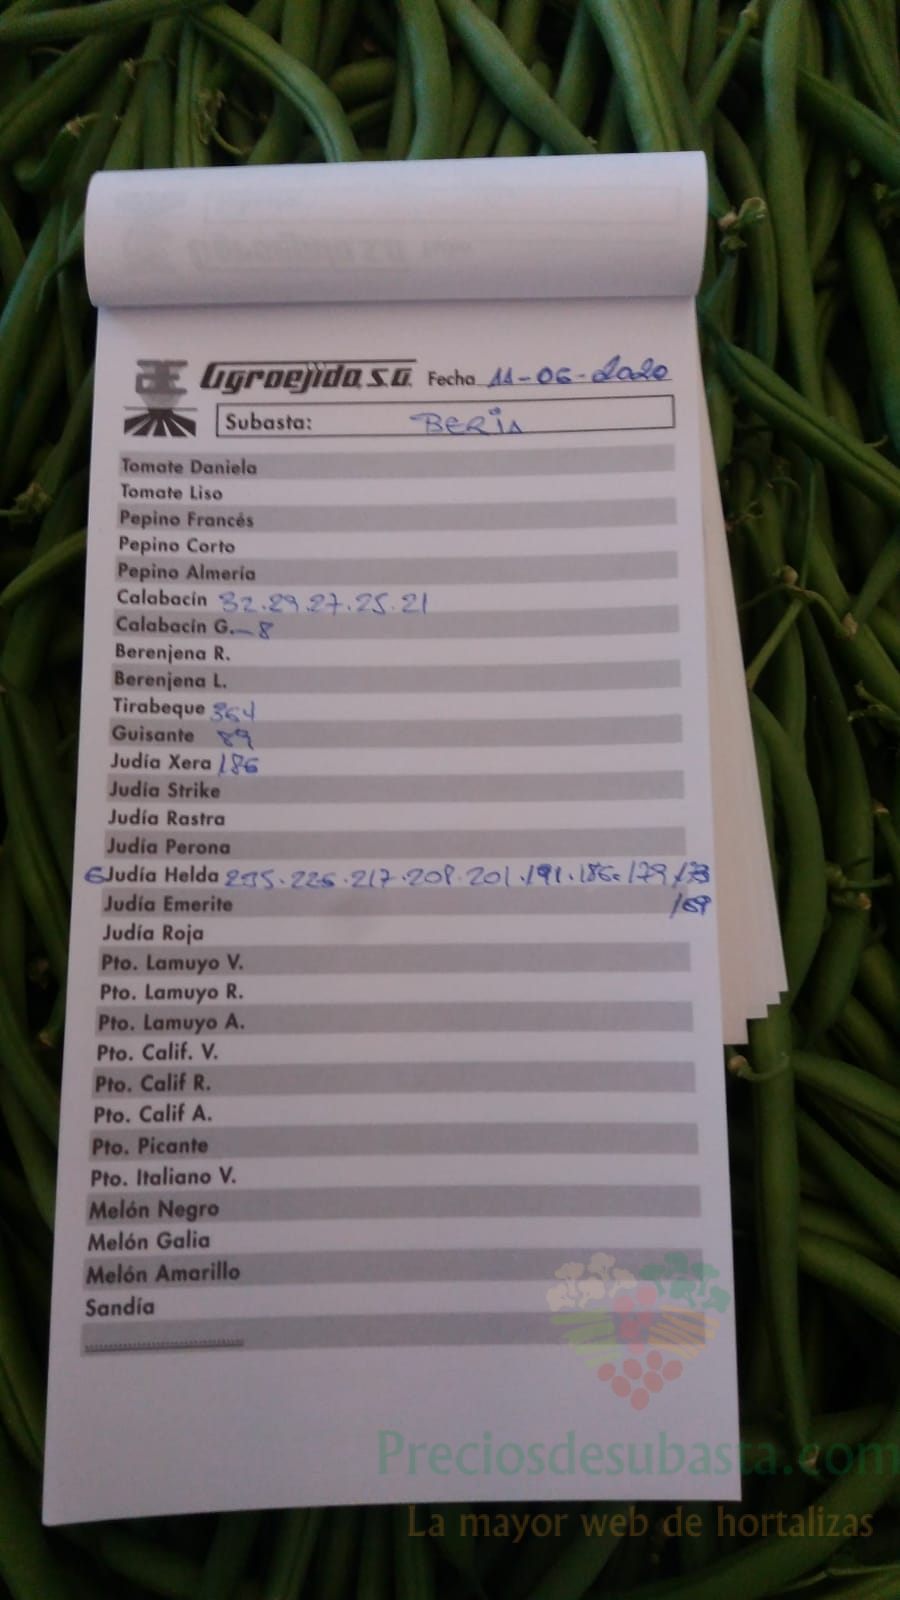 Agroejido, S.A. Fecha 11-06-2020
Subasta: BERJA
Tomate Daniela
Tomate Liso
Pepino Francés
Pepino Corto
Pepino Almería
Calabacín 32.29.27.25.21
Calabacín G.—8
Berenjena R.
Berenjena L.
Tirabeque 364
Guisante 89
Judía Xera 186
Judía Strike
Judía Rastra
Judía Perona
Judía Helda 235.226.217.209.201.191.186.179.173
Judía Emerite 169
Judía Roja
Pto. Lamuyo V.
Pto. Lamuyo R.
Pto. Lamuyo A.
Pto. Calif. V.
Pto. Calif R.
Pto. Calif A.
Pto. Picante
Pto. Italiano V.
Melón Negro
Melón Galia
Melón Amarillo
Sandía
Preciosdesubasta.com
La mayor web de hortalizas